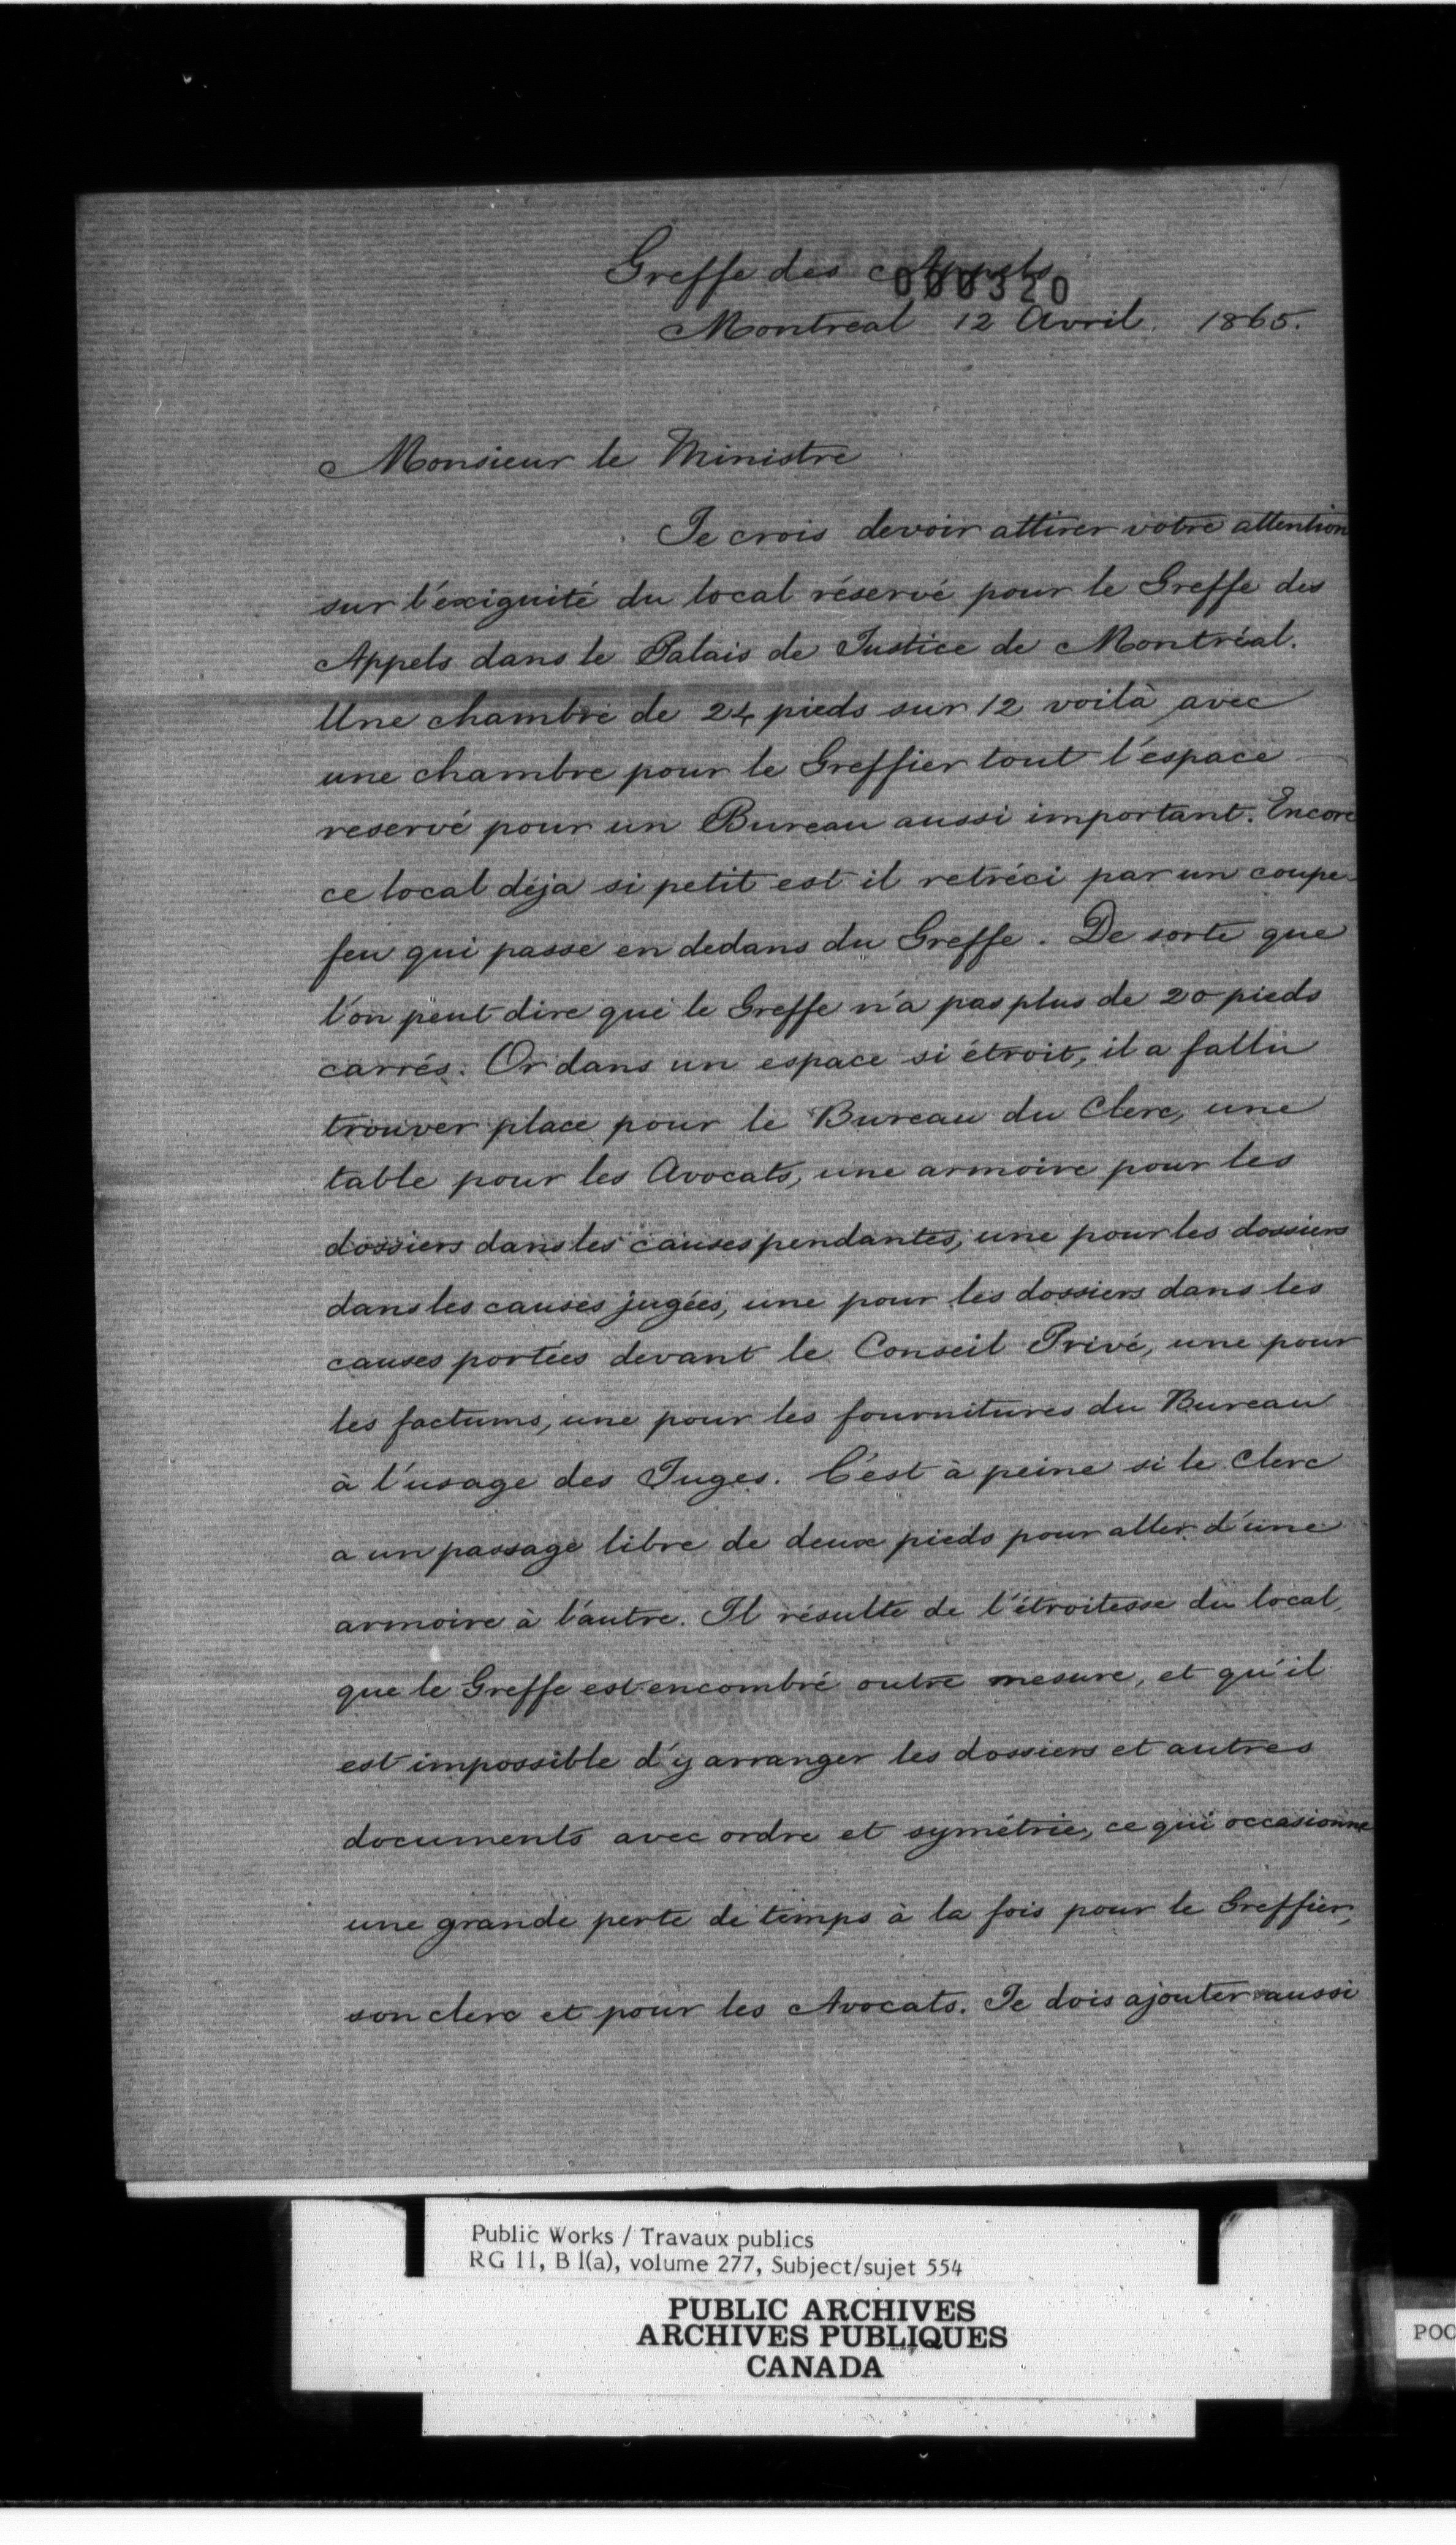 Greffe des Appels
000320
Montreal 12 Avril 1865.
Monsieur le Ministre
Je crois devoir attirer votre attention
sur l'éxiguité du local réservé pour le Greffe des
Appels dans le Palais de Justice de Montréal.
Une chambre de 24 pieds sur 12 voilà avec
une chambre pour le Greffier tout l'espace
reservé pour un Bureau aussi important. Encore
ce local déja si petit est il retréci par un coupe-
feu qui passe en dedans du Greffe. De sorte que
l'on peut dire que le Greffe n'a pas plus de 20 pieds
carrés. Or dans un espace si étroit, il a fallu
trouver place pour le Bureau du Clerc, une
table pour les Avocats, une armoire pour les
dossiers dans les causes pendantes, une pour les dossiers
dans les causes jugées, une pour les dossiers dans les
causes portées devant le Conseil Privé, une pour
les factums, une pour les fournitures du Bureau
à l'usage des Juges. C'est à peine si le Clerc
a un passage libre de deux pieds pour aller d'une
armoire à l'autre. Il résulte de l'étroitesse du local,
que le Greffe est encombré outre mesure, et qu'il
est impossible d'y arranger les dossiers et autres
documents avec ordre et symétrie, ce qui occasionne
une grande perte de temps à la fois pour le Greffier,
son clerc et pour les Avocats. Je dois ajouter aussi
Public Works / Travaux publics
RG 11, B 1(a), volume 277, Subject/sujet 554
PUBLIC ARCHIVES
ARCHIVES PUBLIQUES
CANADA
POC